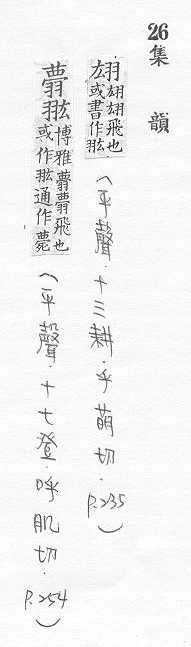 26集 韻
翃翃飛也
或書作翃
（平聲．十三耕．乎萌切．P.235）
翃
博雅飛也
或作翃通作薨
（平聲．十七登．呼肌切．P.254）